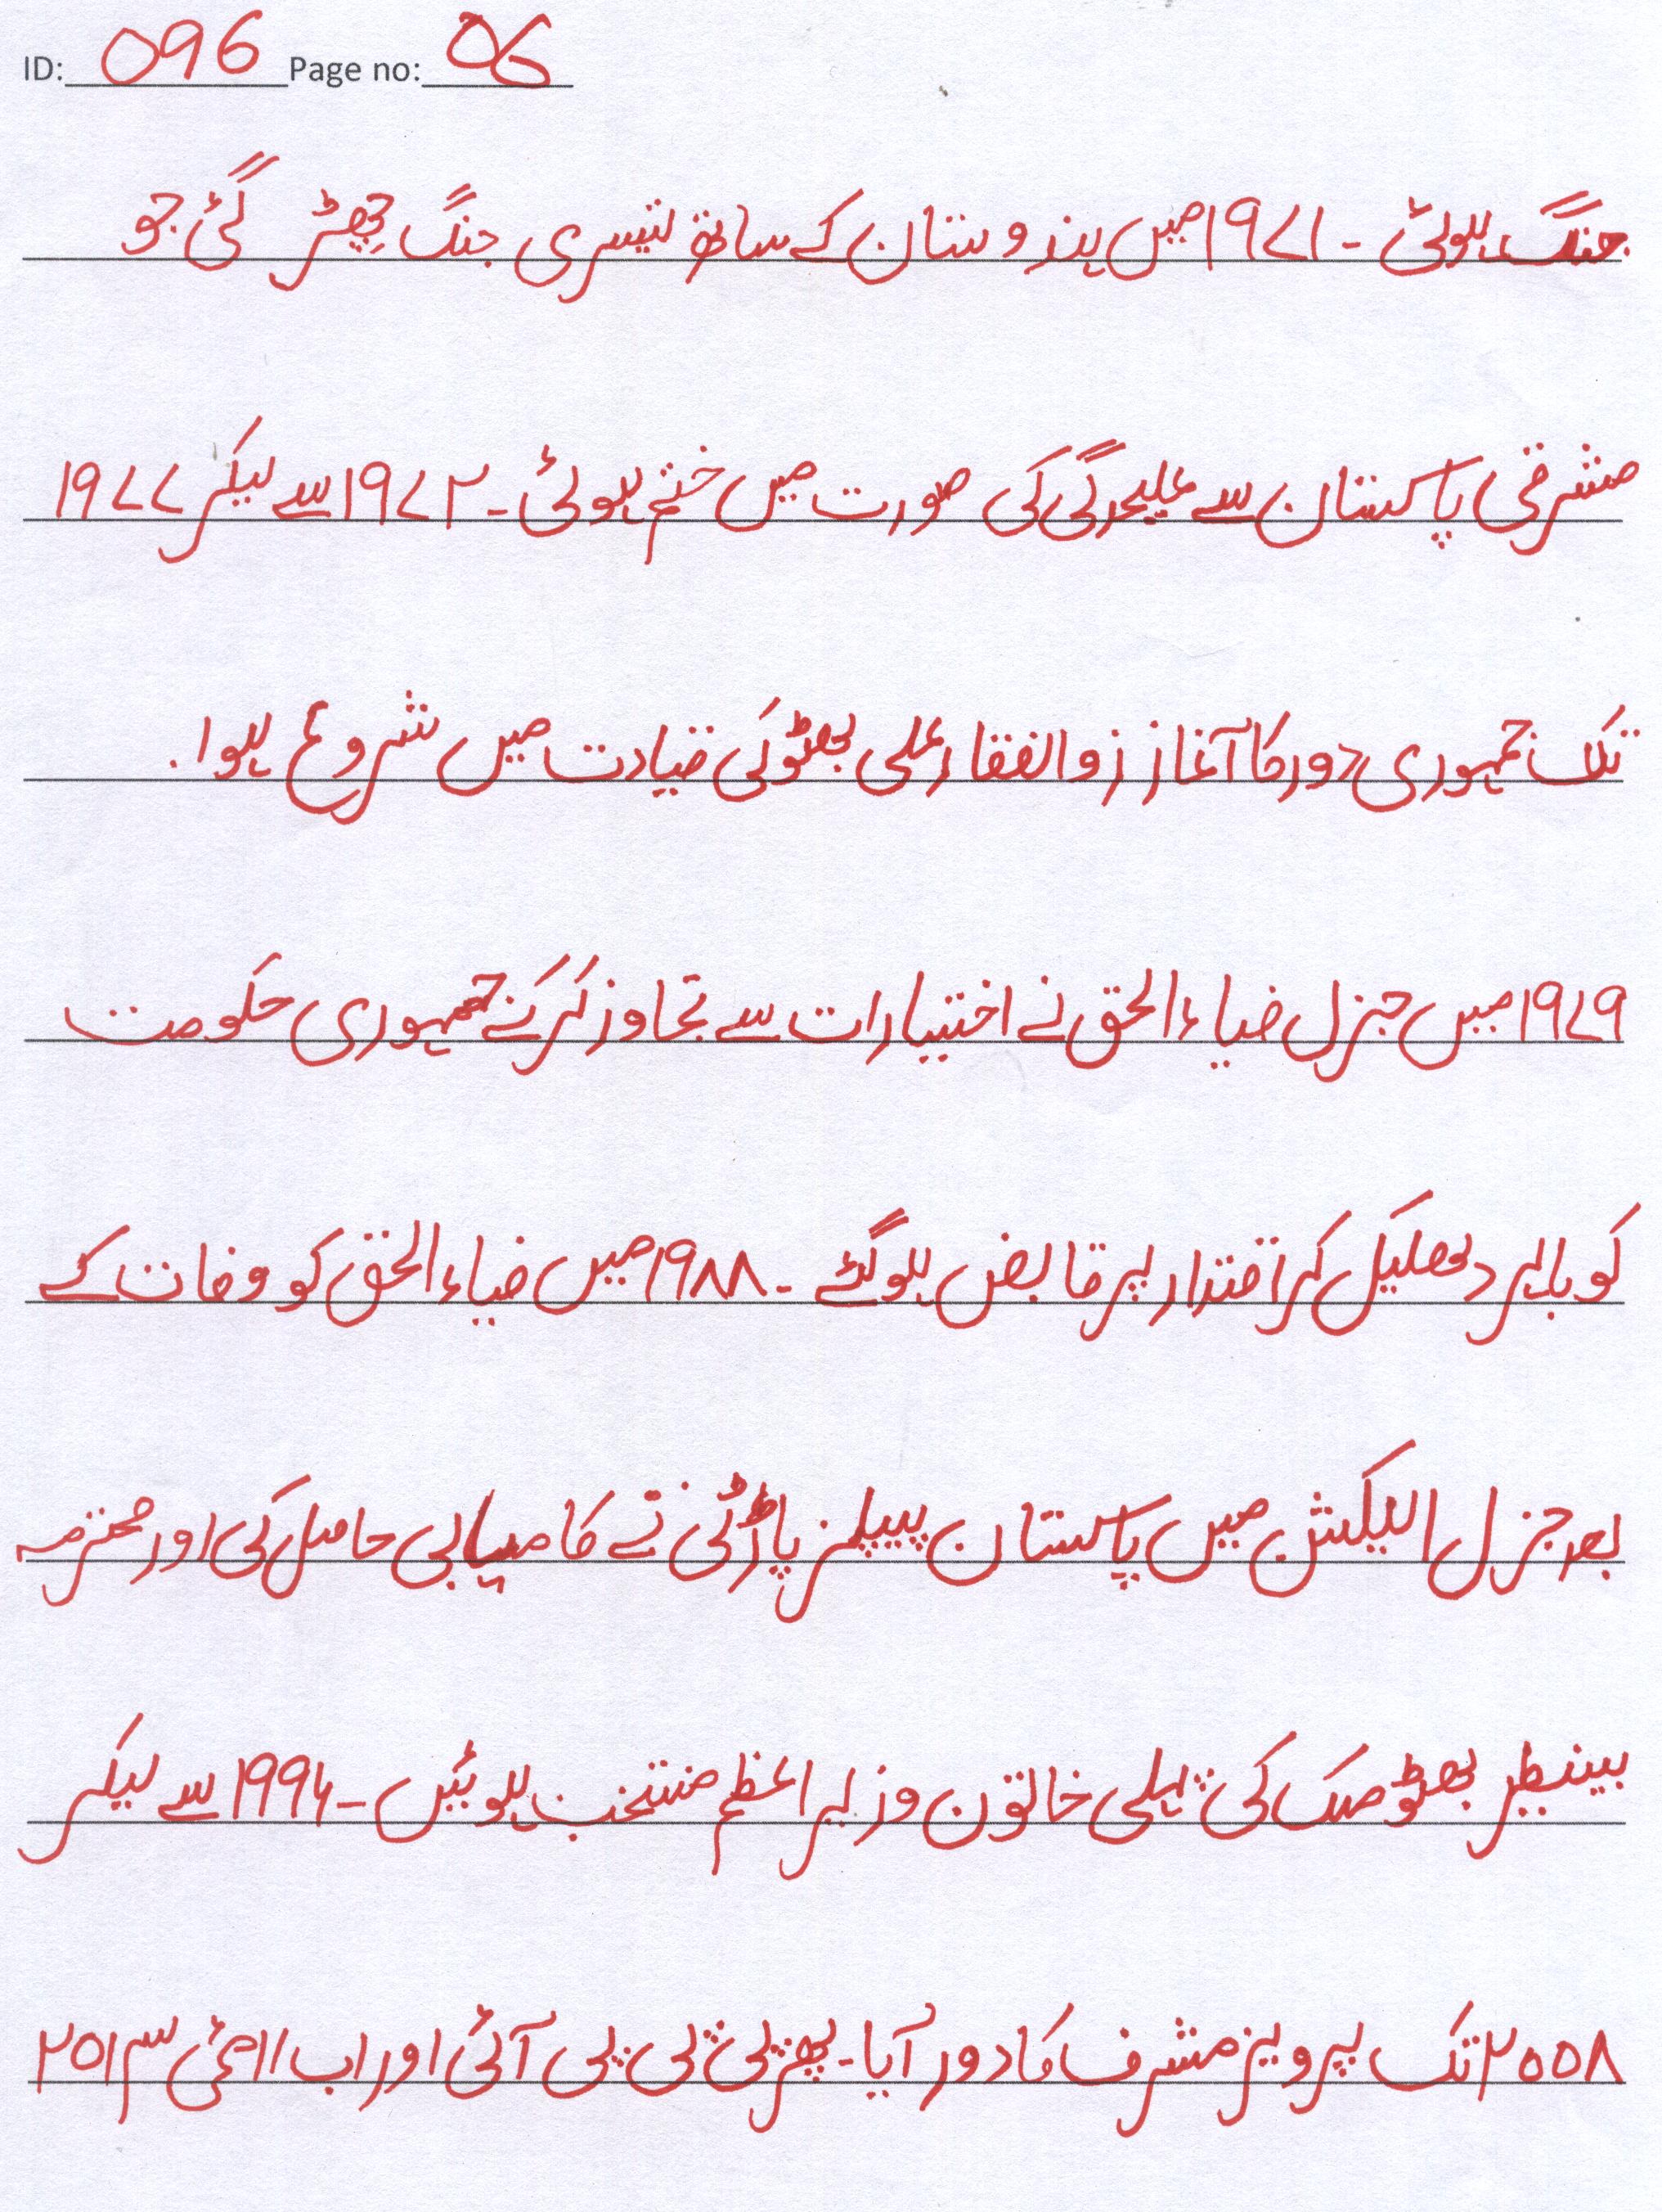 ID: 096 Page no: 06
جنگ ہوئی ۔ ۱۹۷۱ میں ہندوستان کے ساتھ تیسری جنگ چھڑ گئی جو
مشرقی پاکستان سے علیحدگی کی صورت میں ختم ہوئی ۔ ۱۹۷۲ سے لیکر ۱۹۷۷
تک جمہوری دور کا آغاز زوالفقار علی بھٹو کی قیادت میں شروع ہوا ۔
۱۹۷۹ میں جنرل ضیاء الحق نے اختیارات سے تجاوز کرکے جمہوری حکومت
کو باہر دھکیل کر اقتدار پر قابض ہوگئے ۔ ۱۹۸۸ میں ضیاء الحق کو وفات کے
بعد جنرل الیکشن میں پاکستان پیپلز پارٹی نے کامیابی حاصل کی اور محترمہ
بینظیر بھٹو ملک کی پہلی خاتون وزیر اعظم منتخب ہوئیں ۔ ۱۹۹۹ سے لیکر
۲۰۰۸ تک پرویز مشرف کا دور آیا ۔ پھر پی پی پی آئی اور اب ۱۱ مئی ۲۰۱۳